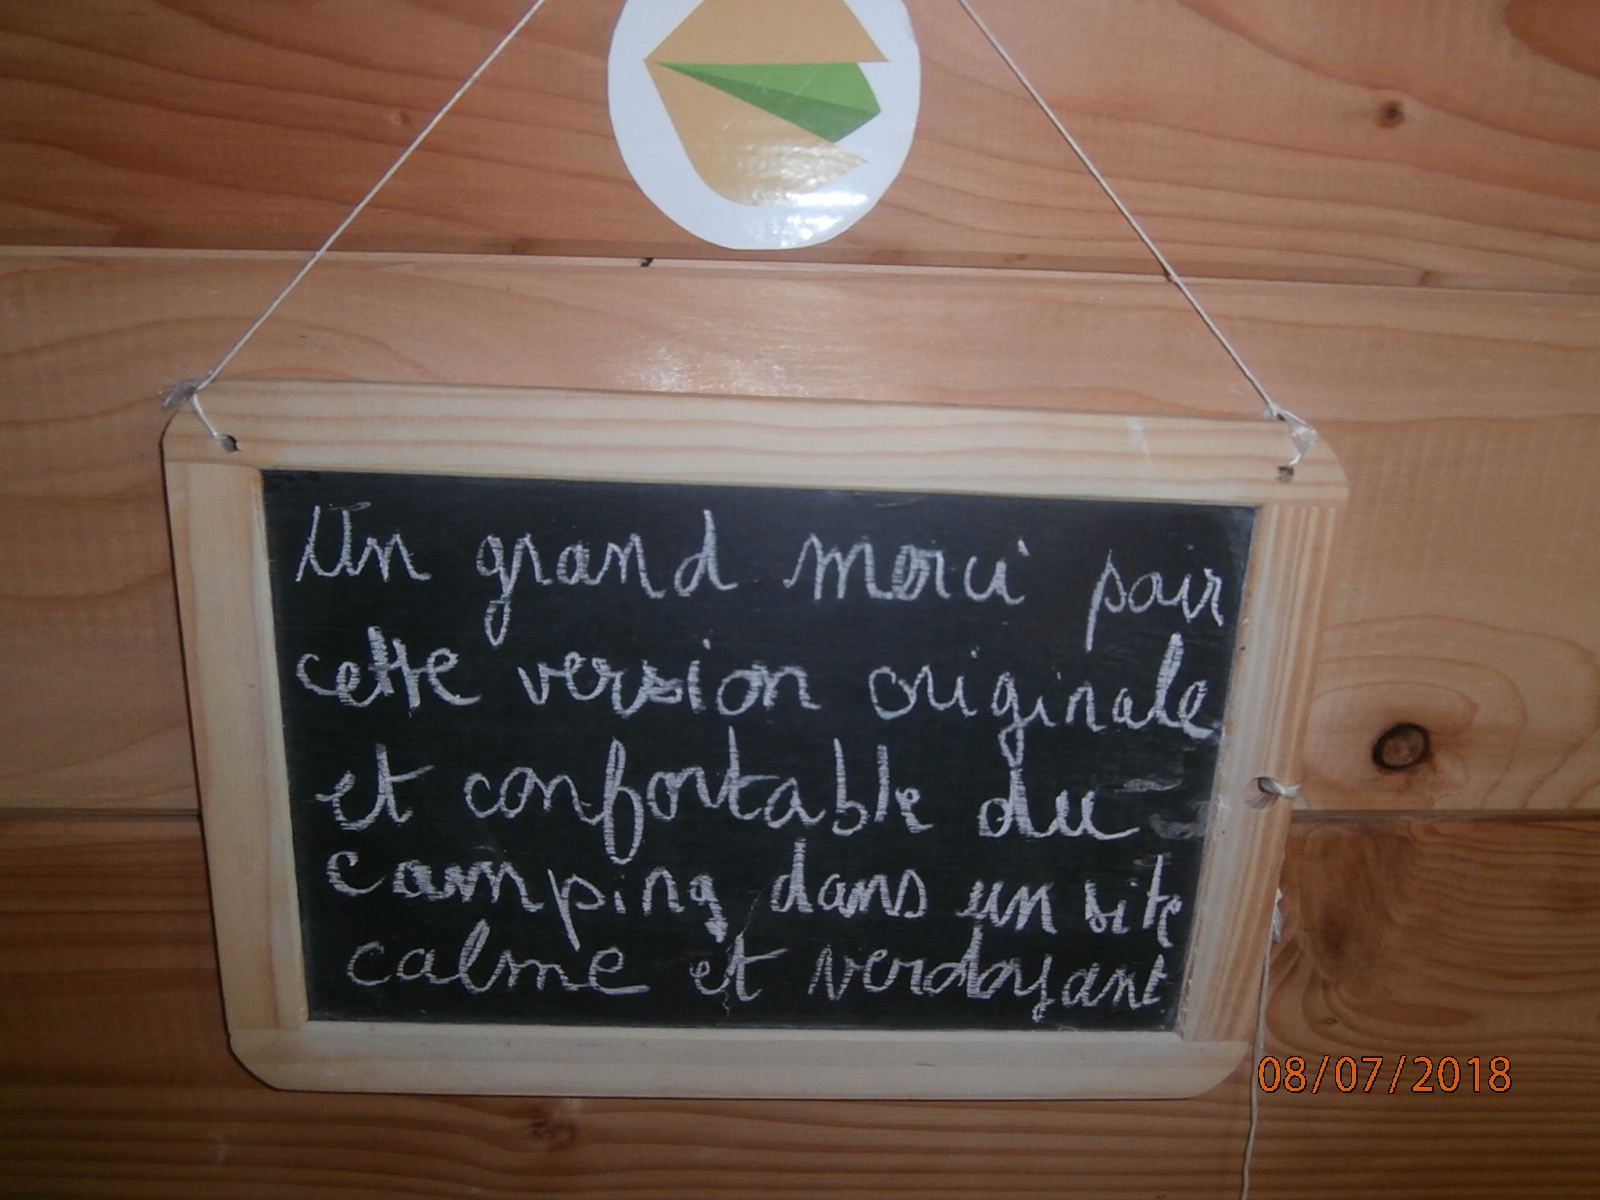 Un grand merci pour
cette version originale
et confortable du
camping dans un site
calme et verdoyant
08/07/2018